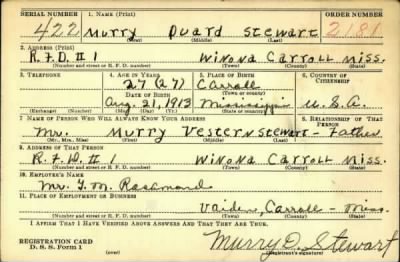 SERIAL NUMBER 1. NAME (Print) ORDER NUMBER
422 Murry Duard Stewart 2181
(First) (Middle) (Last)
2. ADDRESS (Print)
R.F.D. II 1 Winona Carroll Miss.
(Number and street or R. F. D. number) (Town) (County) (State)
3. TELEPHONE 4. AGE IN YEARS 5. PLACE OF BIRTH 6. COUNTRY OF CITIZENSHIP
27 (27) Carroll
DATE OF BIRTH (Town or county)
Aug. 21, 1913 Mississippi U.S.A.
(Exchange) (Number) (Mo.) (Day) (Yr.) (State or country)
7. NAME OF PERSON WHO WILL ALWAYS KNOW YOUR ADDRESS 8. RELATIONSHIP OF THAT PERSON
Mr. Murry Vestern Stewart - Father
(Mr., Mrs., Miss) (First) (Middle) (Last)
9. ADDRESS OF THAT PERSON
R.F.D. II 1 Winona Carroll Miss.
(Number and street or R. F. D. number) (Town) (County) (State)
10. EMPLOYER'S NAME
Mr. T. M. Rosamond
11. PLACE OF EMPLOYMENT OR BUSINESS
Vaiden, Carroll - Miss.
(Number and street or R. F. D. number) (Town) (County) (State)
I AFFIRM THAT I HAVE VERIFIED ABOVE ANSWERS AND THAT THEY ARE TRUE.
REGISTRATION CARD
D. S. S. Form 1
Murry D. Stewart
(Registrant's signature)